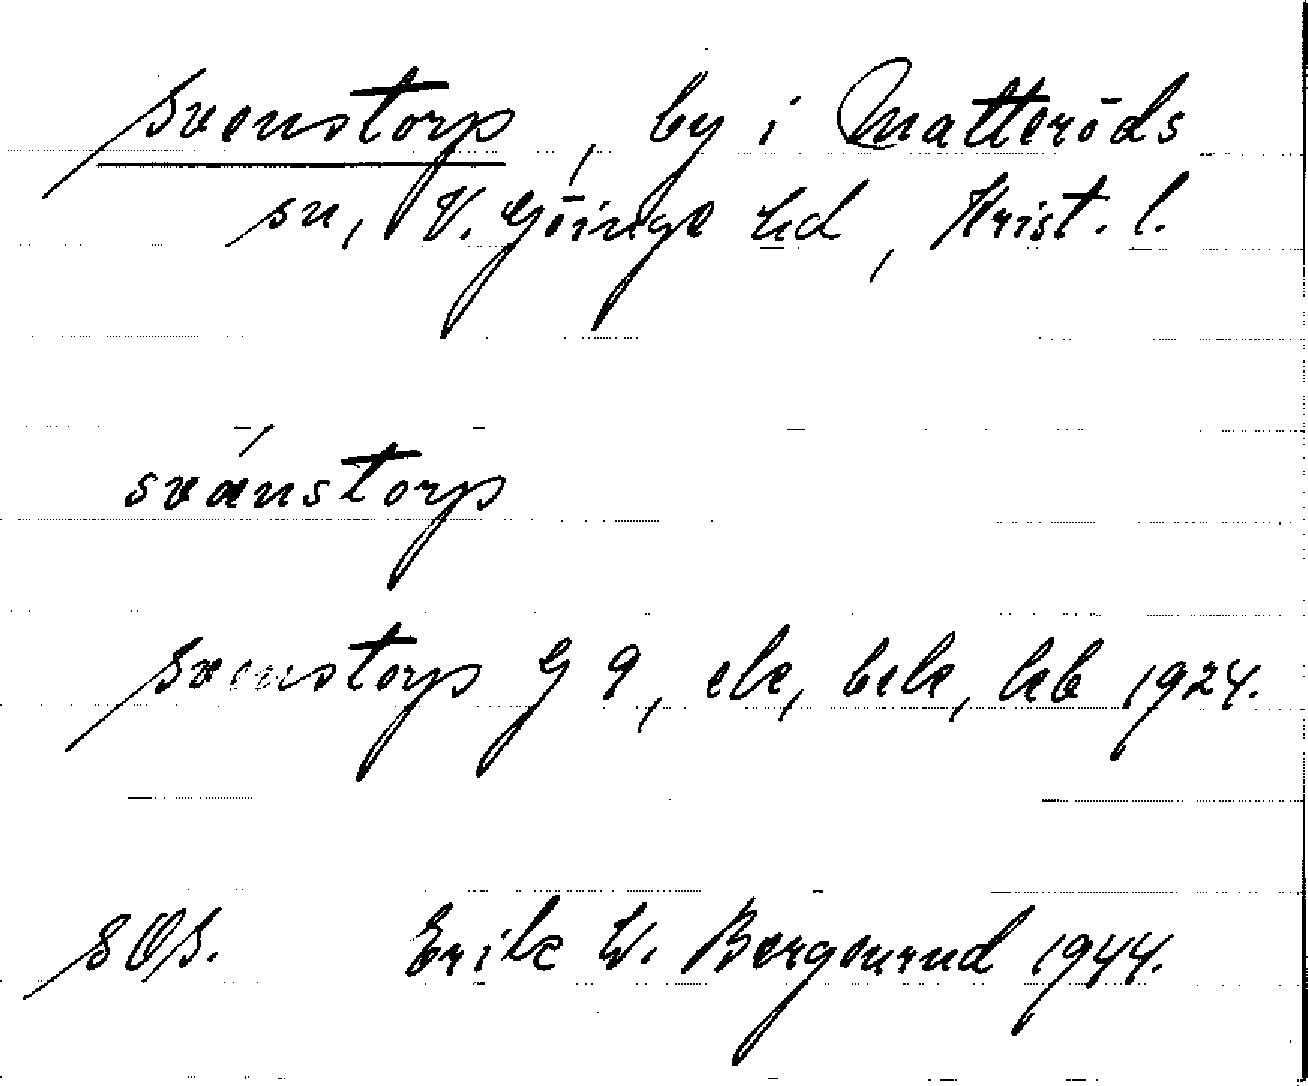 Svenstorp, by i Matteröds
sn, V. Göinge hd, Krist. l.
svánstorp
Svenstorp G 9, ek, bek, hb 1924.
SOS. Erik W. Bergourud 1944.